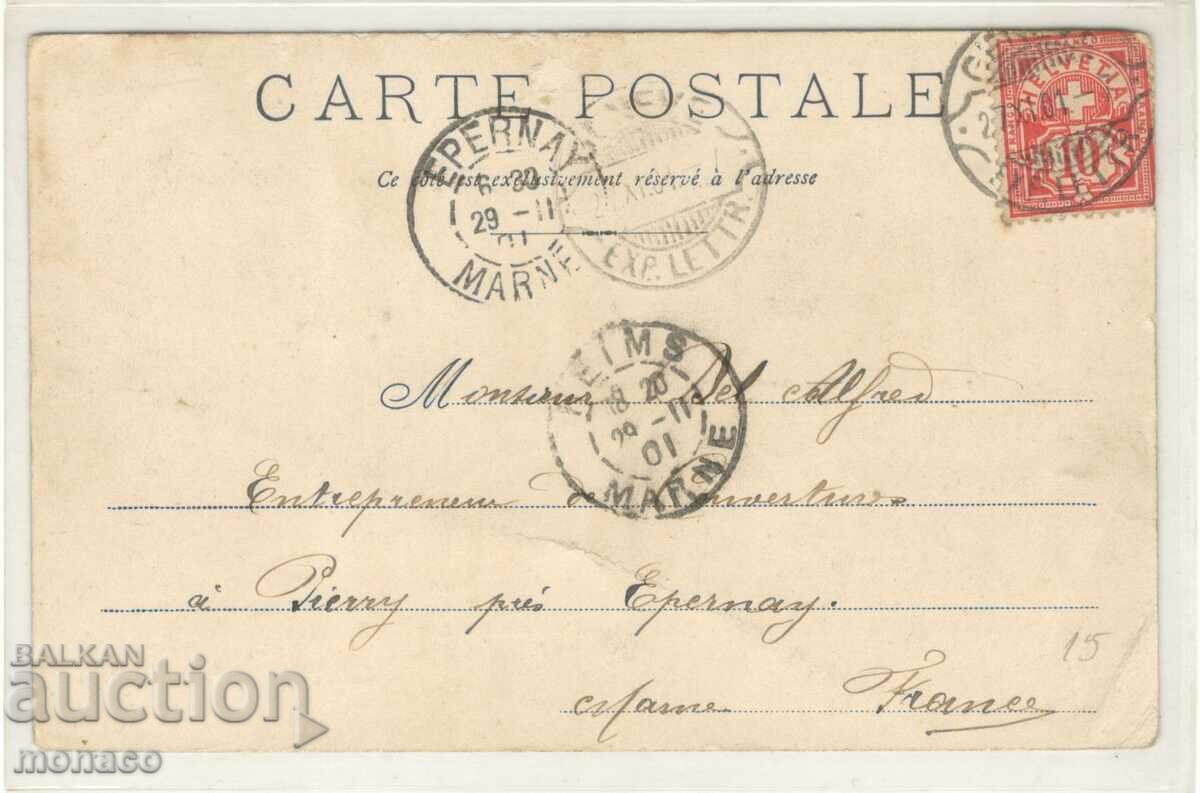 CARTE POSTALE
Ce côté est exclusivement réservé à l'adresse
EPERNAY
6 20
29 -11
01
MARNE
XI.01
EXP. LETTR.
HELVETIA
10
REIMS
18 20
29 -11
01
MARNE
Monsieur Del Alfred
Entrepreneur de Couvertures
à Pierry prés Epernay.
Marne France
15
BALKAN
auction
monaco